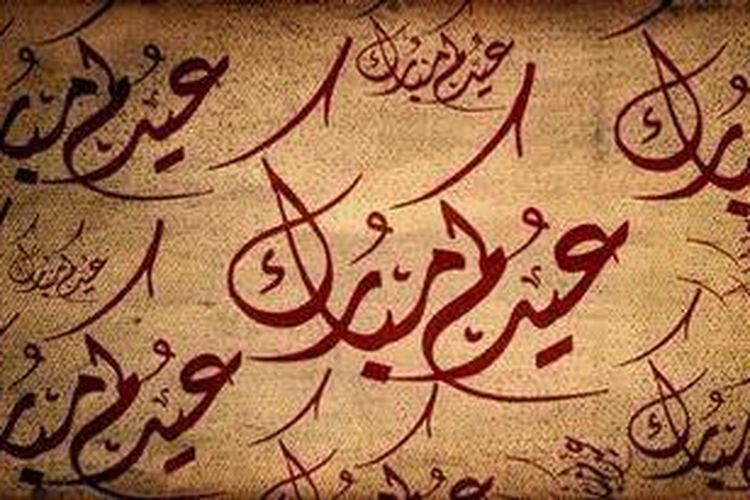 عيدكم مبارك
عيدكم مبار
بارك
عيدكم مبارك
عيدكم مبارك
عيدكم مبار
مبارك